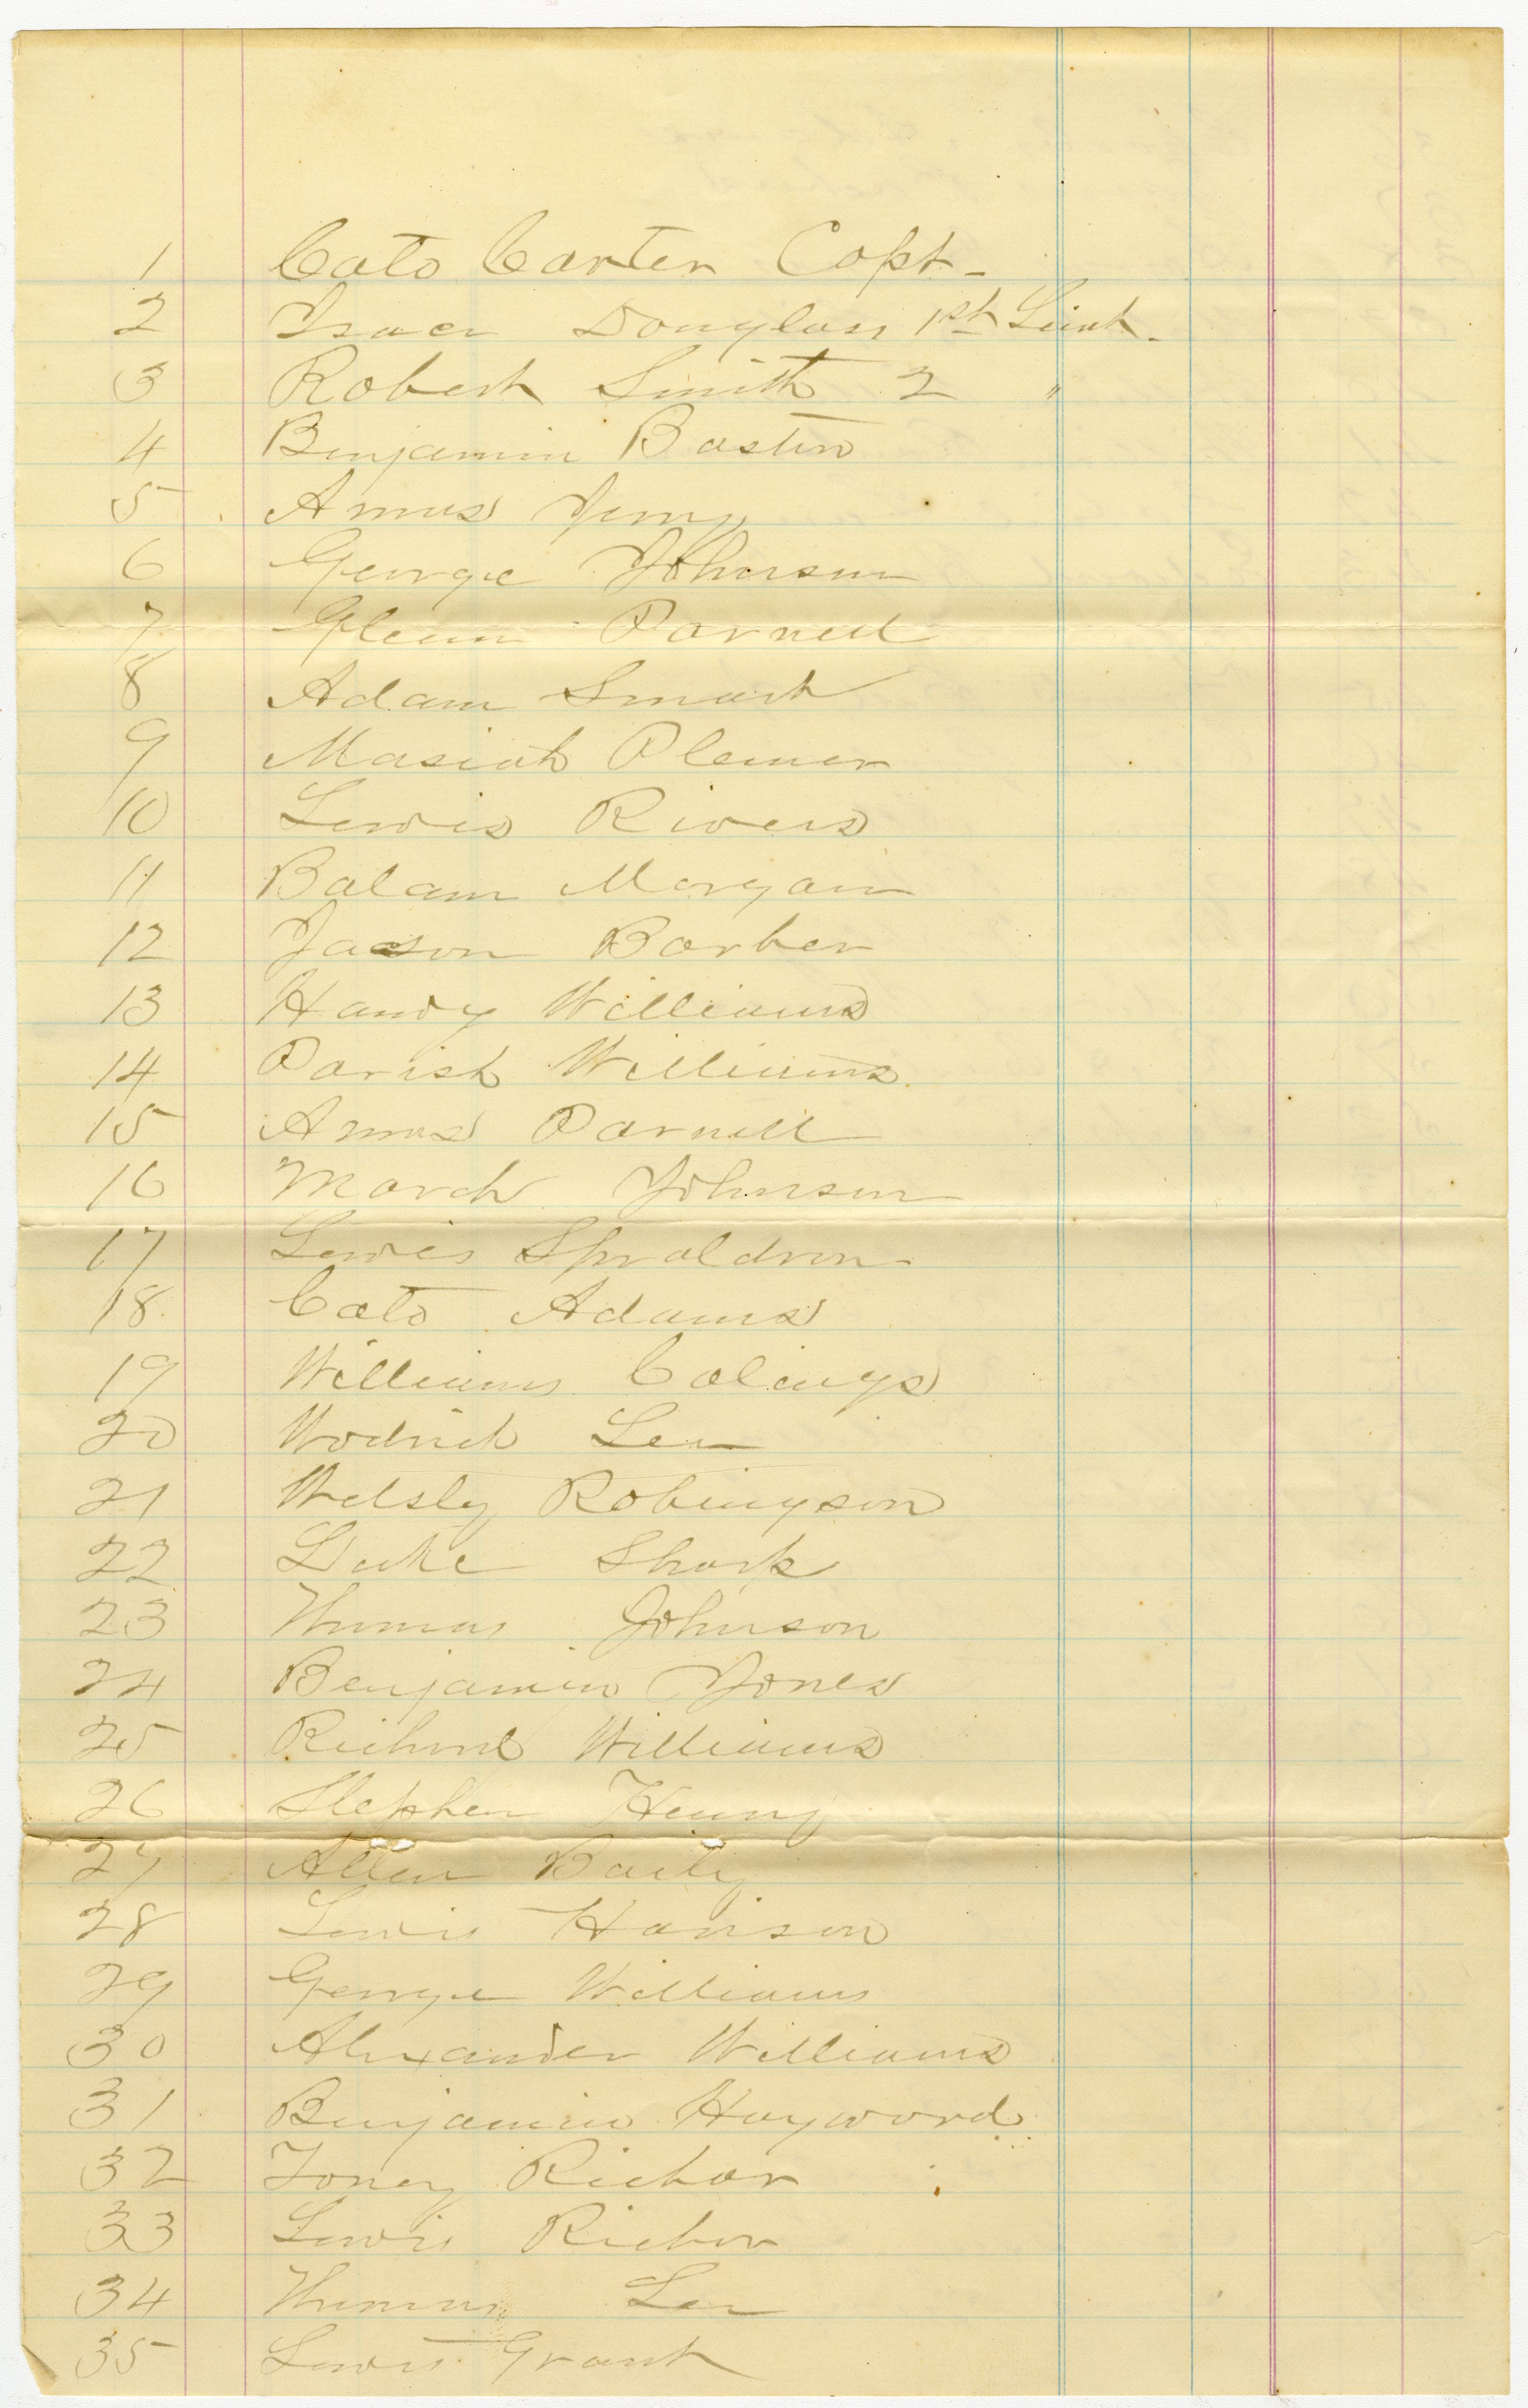 1 Cato Carter Capt-
2 Isaac Douglass 1st Lieut.
3 Robert Smith 2 "
4 Benjamin Boston
5 Amus Jerry
6 George Johnson
7 Glenn Parnell
8 Adam Smart
9 Masiah Plemer
10 Lewis Rivers
11 Balam Morgan
12 Jacson Barber
13 Handy Williams
14 Parish Williams
15 Amos Parnell
16 March Johnson
17 Lewis Spraldron
18 Cato Adams
19 Williams Colings
20 Wodrick Lee
21 Welsly Robingson
22 Duke Sharp
23 Thomas Johnson
24 Benjamin Jones
25 Richard Williams
26 Stephen Henry
27 Allen Baily
28 Lewis Harison
29 George Williams
30 Alexander Williams
31 Benjamin Hayword
32 Toney Richar
33 Lewis Richar
34 Thomas Lee
35 Lewis Grant